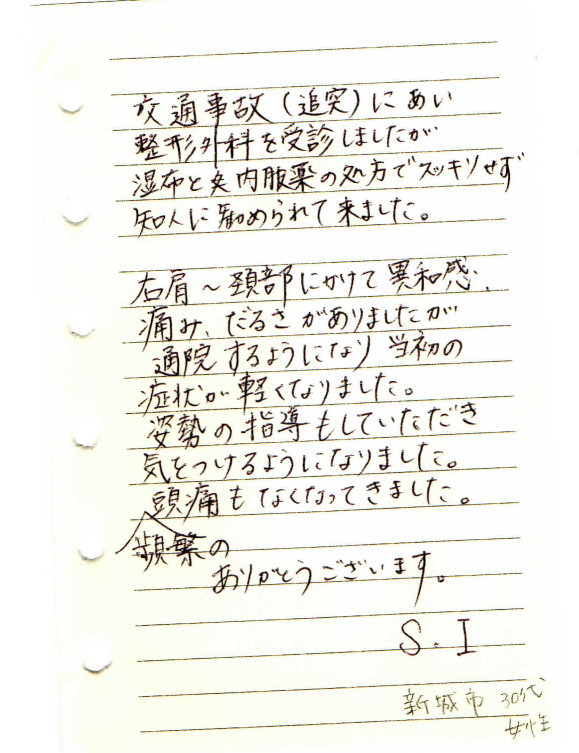 交通事故(追突)にあい
整形外科を受診しましたが
湿布と内服薬の処方でスッキリせず
知人に勧められて来ました。
右肩～頚部にかけて異和感、
痛み、だるさがありましたが
通院するようになり当初の
症状が軽くなりました。
姿勢の指導もしていただき
気をつけるようになりました。
頭痛もなくなってきました。
頻繁の
ありがとうございます。
S.I
新城市 30代
女性